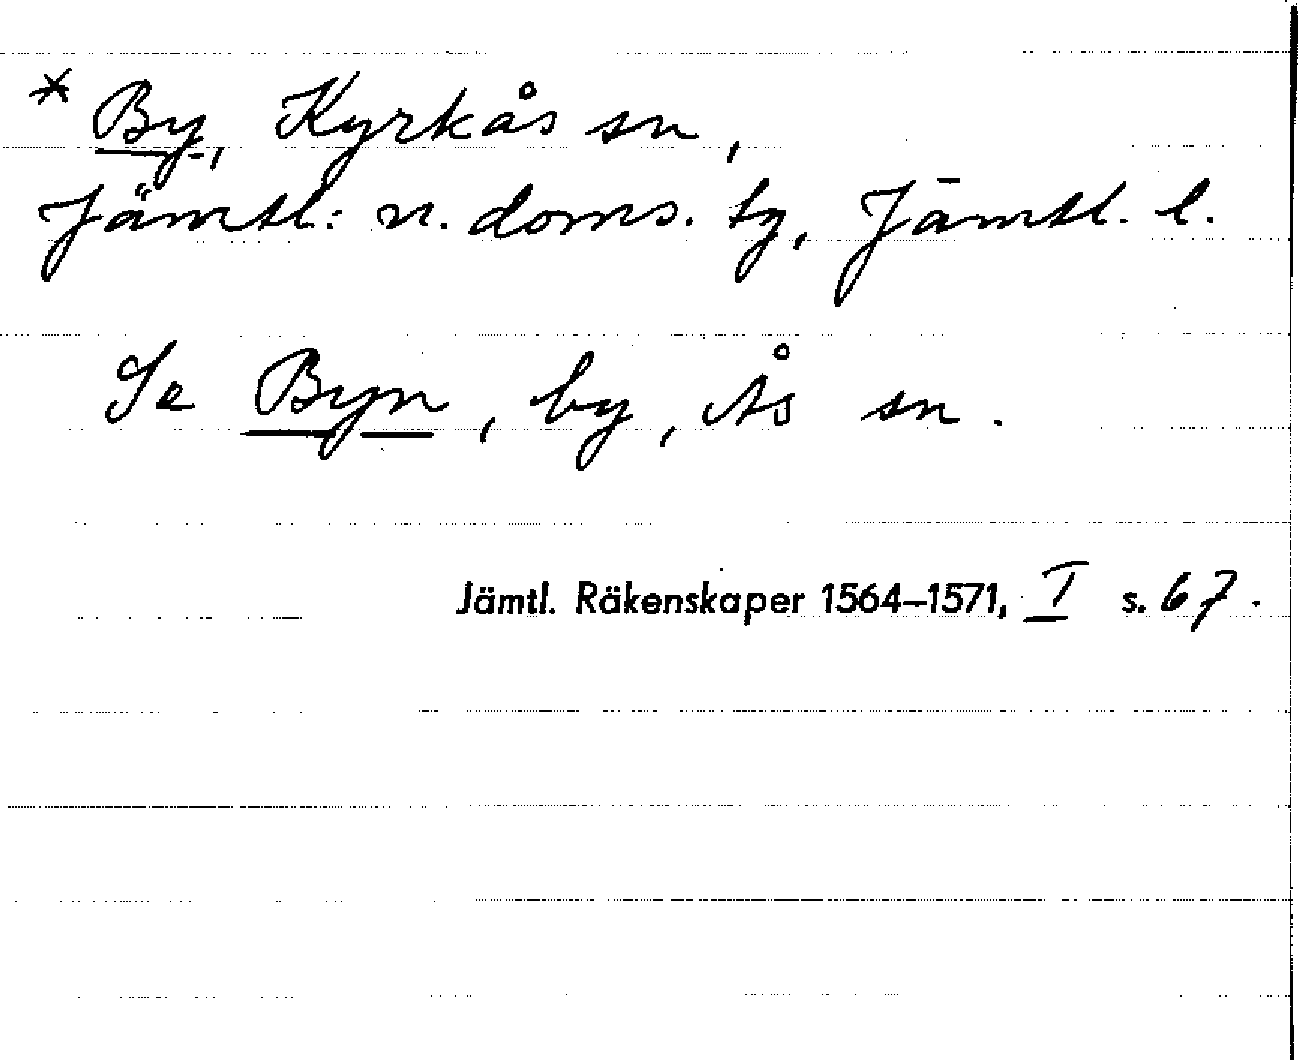 * By, Kyrkås sn,
Jämtl:s n. doms. tg, Jämtl. l.
Se Byn, by, Ås sn.
Jämtl. Räkenskaper 1564–1571, I s. 67.